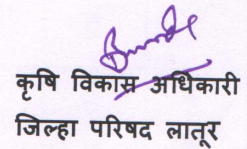 कृषि विकास अधिकारी
जिल्हा परिषद लातूर